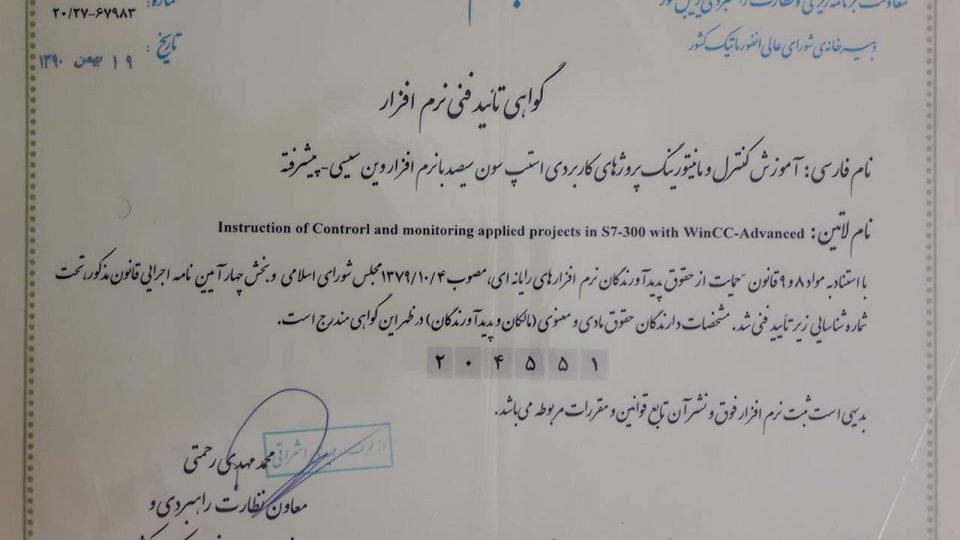 شماره: ۲۰/۲۷-۶۷۹۸۳
دبیرخانه‌ی شورای عالی انفورماتیک کشور
تاریخ: ۱۹ بهمن ۱۳۹۰
گواهی تائید فنی نرم افزار
نام فارسی: آموزش کنترل و مانیتورینگ پروژهای کاربردی استپ سون سیصد با نرم افزار وین سیسی-پیشرفته
نام لاتین: Instruction of Controrl and monitoring applied projects in S7-300 with WinCC-Advanced
با استناد به مواد ۸ و ۹ قانون "حمایت از حقوق پدیدآورندگان نرم افزارهای رایانه ای، مصوب ۱۳۷۹/۱۰/۴ مجلس شورای اسلامی و بخش چهار آیین نامه اجرایی قانون مذکور، تحت
شماره شناسایی زیر تأیید فنی شد. مشخصات دارندگان حقوق مادی و معنوی (مالکان و پدیدآورندگان) در ظهر این گواهی مندرج است.
۲ ۰ ۴ ۵ ۵ ۱
بدیهی است ثبت نرم افزار فوق و نشر آن تابع قوانین و مقررات مربوطه می باشد.
از طرف اشراقی
محمد مهدی رحمتی
معاون نظارت راهبردی و